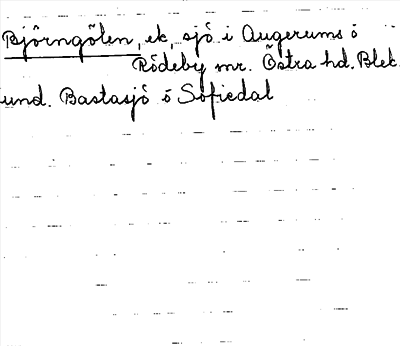 Björngölen, ek, sjö i Augerums o
Rödeby snr. Östra hd. Blek.
und. Bastasjö o Sofiedal